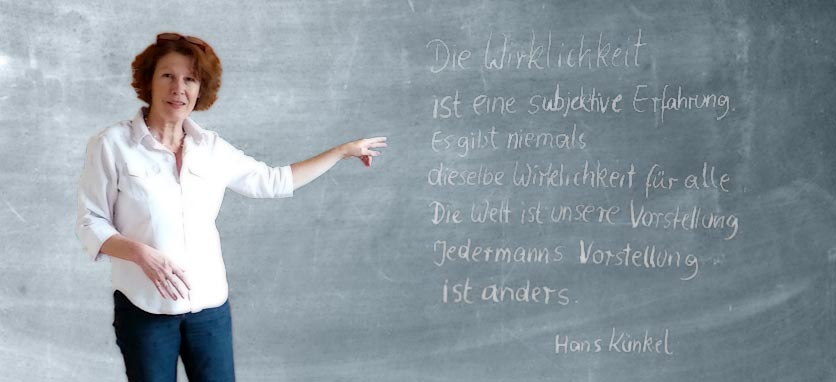 Die Wirklichkeit
ist eine subjektive Erfahrung.
Es gibt niemals
dieselbe Wirklichkeit für alle.
Die Welt ist unsere Vorstellung
Jedermanns Vorstellung
ist anders.
Hans Künkel